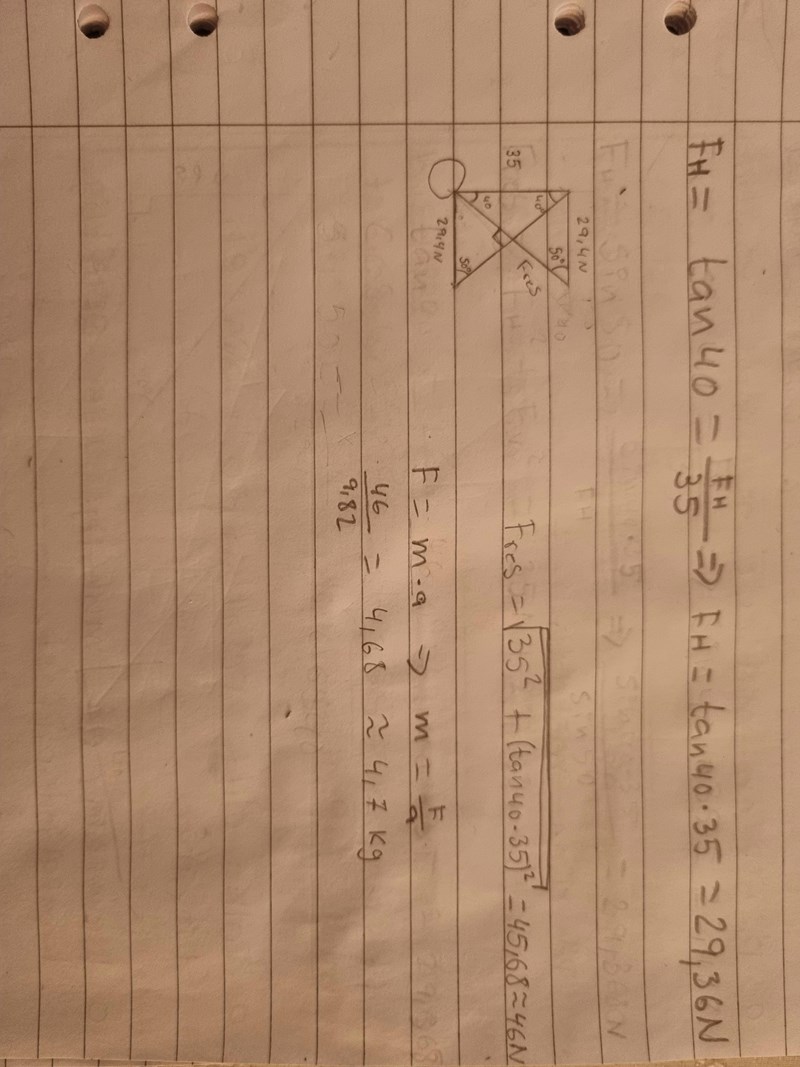 FH = tan40 = FH/35 ⇒ FH = tan40·35 = 29,36N
29,4N
40° 50°
35
40
Fres
50°
29,4N
Fres = √35² + (tan40·35)² = 45,68 ≈ 46N
F = m·a ⇒ m = F/a
46/9,82 = 4,68 ≈ 4,7 kg